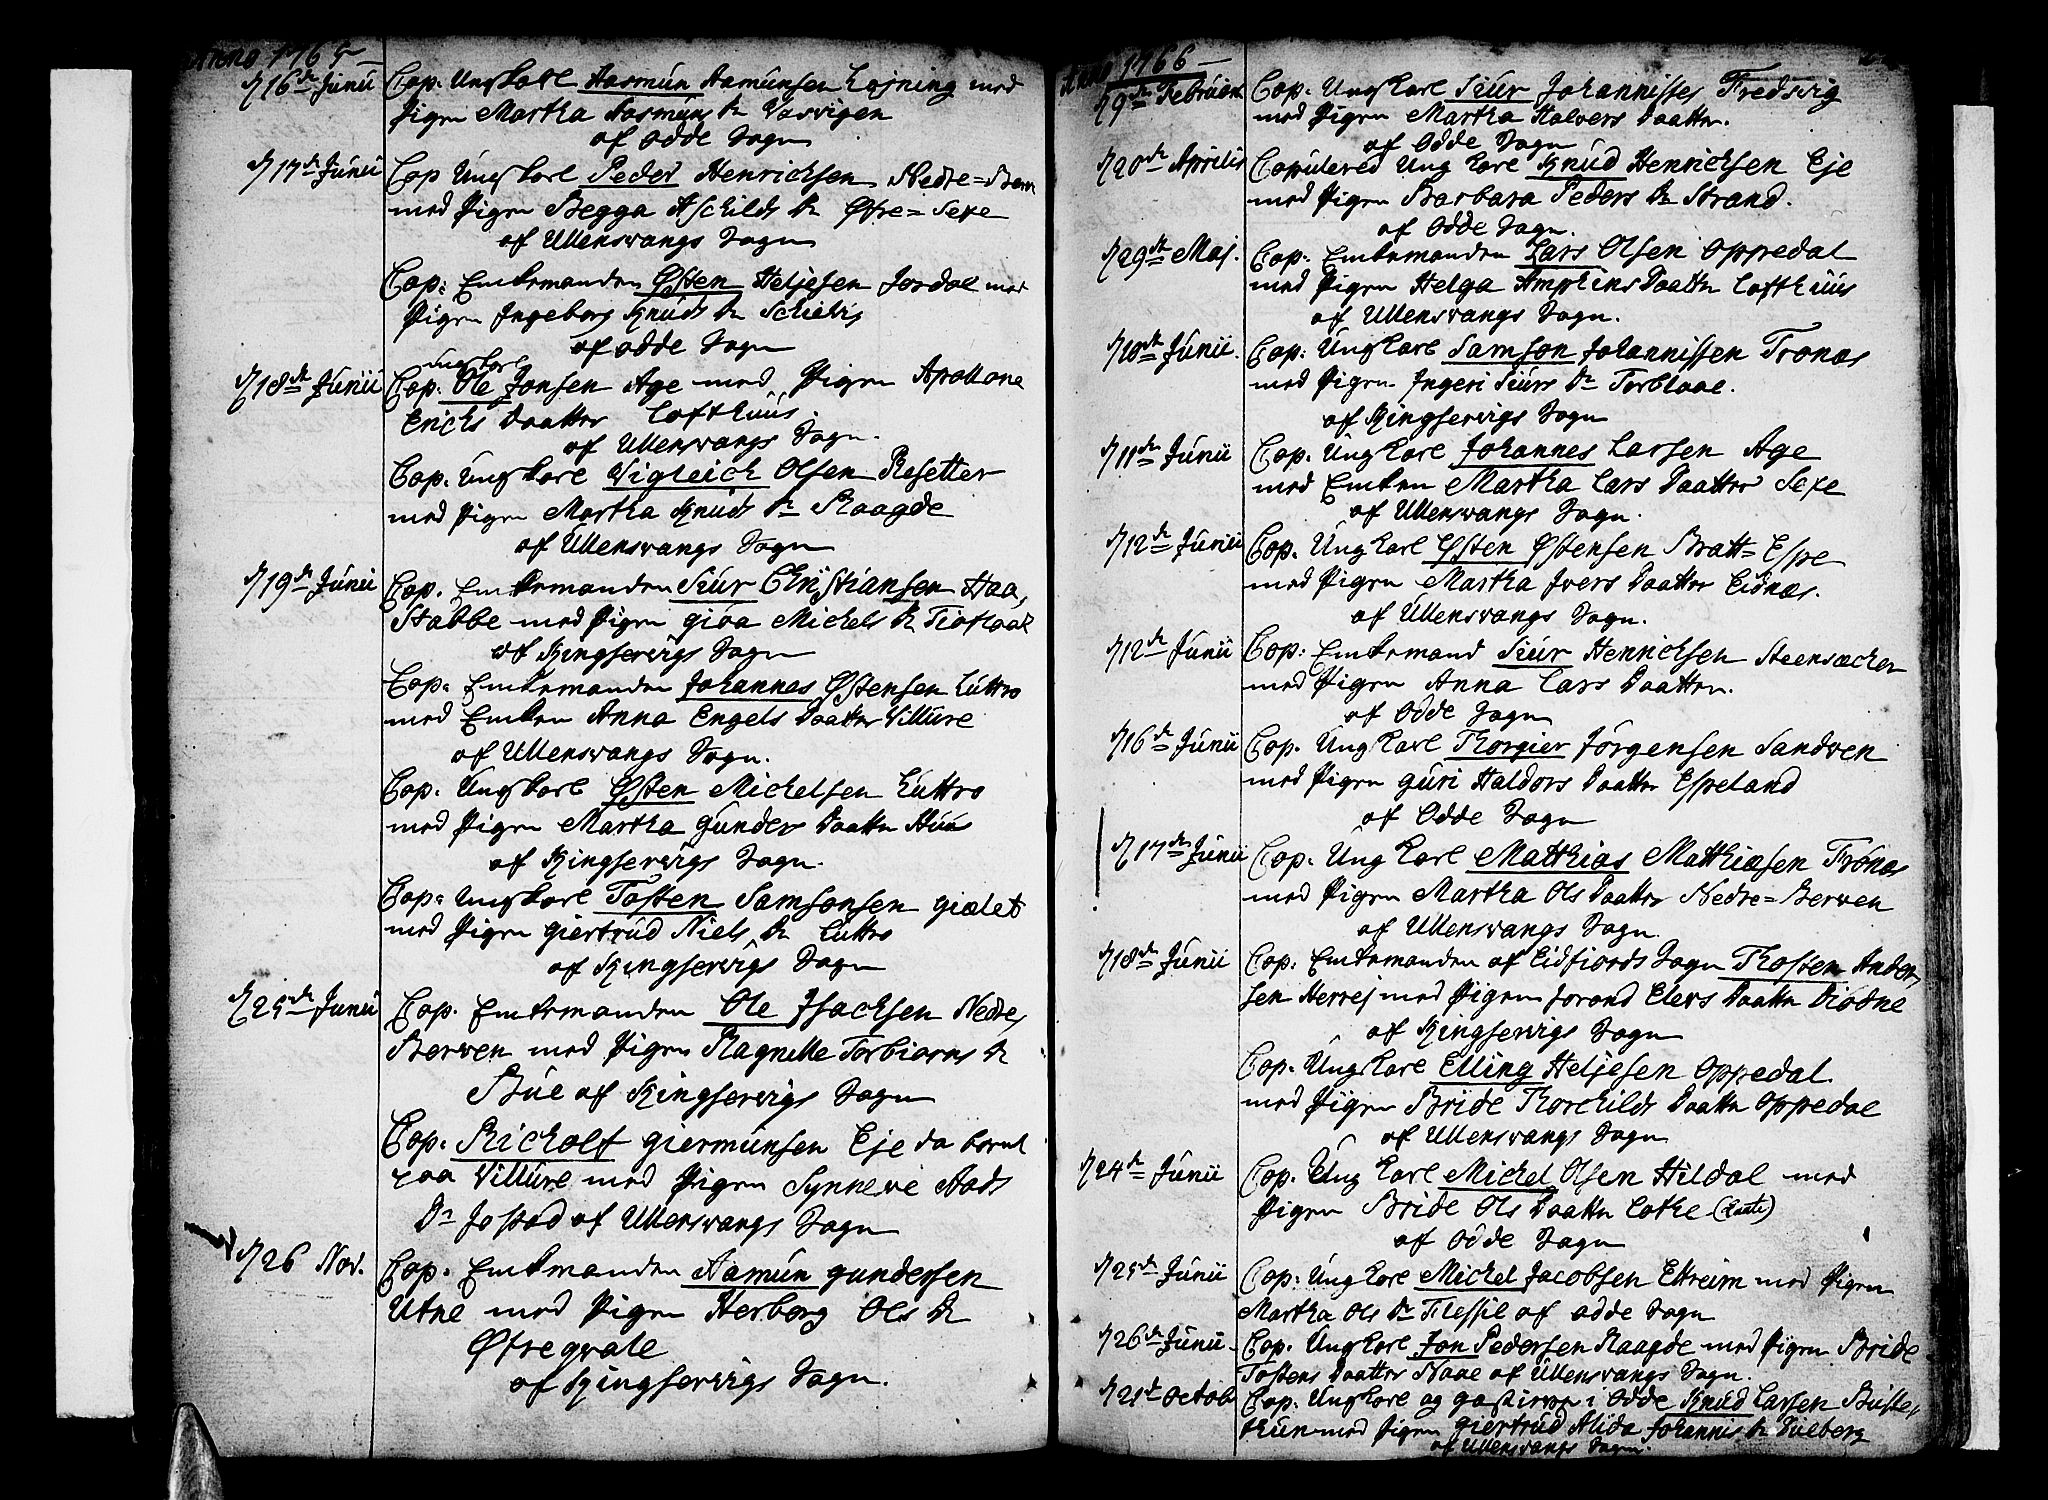 Anno 1765
d 16de Junii Cop. Ungkarl Aasmun Aamunsen med
Pigen Martha Aasmuns Dr
af Odde Sogn
d 17de Junii Cop Ungkarl Peder Henrichsen Nedre=
med Pigen Begga Aschilds Dr Øfre=Sexe
af Ullensvangs Sogn
Cop: Enkemanden Østen Heljesen Jordal med
Pigen Ingeborg Knuds Dr
af Odde Sogn
ungkarl
d 18de Junii Cop. Ole Jonsen Age med Pigen Apollone
Erichs Daatter Lofthuus.
af Ullensvangs Sogn.
Cop. Ungkarl Vigleich Olsen Resetter
med Pigen Martha Knuds Dr Raagde
af Ullensvangs Sogn
d 19de Junii Cop. Enkemanden Siur Christiansen Haa,
Stabbe med Pigen Gioa Michels Dr
af Kingservigs Sogn
Cop. Enkemanden Johannes Østensen Luttro
med Enken Anna Engels Daatter Villure
af Ullensvangs Sogn.
Cop. Ungkarl Østen Michelsen Luttro
med Pigen Martha Gunders Daatter Huus
af Kingservigs Sogn.
Cop. Ungkarl Tosten Samsonsen Giælet
med Pigen Giertrud Niels Dr Luttro
af Kingservigs Sogn
d 25de Junii Cop. Enkemanden Ole Isachsen Nedre,
Berven med Pigen Ragnille Torbiørns Dr
Bue af Kingservigs Sogn
Cop. Richolf Giermunsen Eje da
paa Villure med Pigen Synneve Aads
Dr Jostad af Ullensvangs Sogn
d 26 Nov. Cop. Enkemanden Aamun Gundersen
Utne med Pigen Herborg Ols Dr
Øfreqvale
af Kingservigs Sogn.
Anno 1766
d 9de Februari Cop. Ungkarl Siur Johannisses Fredsvig
med Pigen Martha Halvers Daatter.
af Odde Sogn
d 20de Aprilis Copulered Ungkarl Knud Henrichsen Eje
med Pigen Barbara Peders Dr Strand.
af Odde Sogn.
d 29de Maj. Cop. Enkemanden Lars Olsen Oppedal
med Pigen Helga Amphins Daatter Lofthuus
af Ullensvangs Sogn.
d 10de Junii. Cop. Ungkarl Samson Johannissen Tronæs
med Pigen Ingeri Siurs Dr Torblaae.
af Kingservigs Sogn
d 11de Junii Cop. Ungkarl Johannes Larsen Age
med Enken Martha Lars Daatter Sexe
af Ullensvangs Sogn.
d 12de Junii Cop. Ungkarl Østen Østensen Bratt=Espe
med Pigen Martha Ivers Daatter Eidnæs.
af Ullensvangs Sogn.
d 12de Junii Cop: Enkemand Siur Henrichsen
med Pigen Anna Lars Daatter.
af Odde Sogn
d 16de Junii Cop. Ungkarl Thorgier Jørgensen Sandven
med Pigen Guri Haldors Daatter Espeland
af Odde Sogn
d 17de Junii Cop. Ungkarl Matthias Matthiæsen Tronæs
med Pigen Martha Ols Daatter Nedre=Berven
af Ullensvangs Sogn.
d 18de Junii Cop. Enkemanden af Eidfiords Sogn Thosten Ander,
sen Herrej med Pigen Jorand Elers Daatter Diødne
af Kingservigs Sogn
Cop. Ungkarl Elling Heljesen Oppedal
med Pigen Bride Thorchilds Daatter Oppedal
af Ullensvangs Sogn
d 24de Junii Cop. Ungkarl Michel Olsen Hildal med
Pigen Bride Ols Daatter Lothe
af Odde Sogn
d 25de Junii Cop. Ungkarl Michel Jacobsen Eitreim med Pigen
Martha Ols Dr af Odde Sogn
d 26de Junii Cop. Ungkarl Jon Pedersen Raagde med Pigen Bride
Tostens Daatter Naae af Ullensvangs Sogn.
October Cop. Ungkarl og i Odde Knud Larsen
med Pigen Giertrud Alida Johannis Dr
af Ullensvangs Sogn.